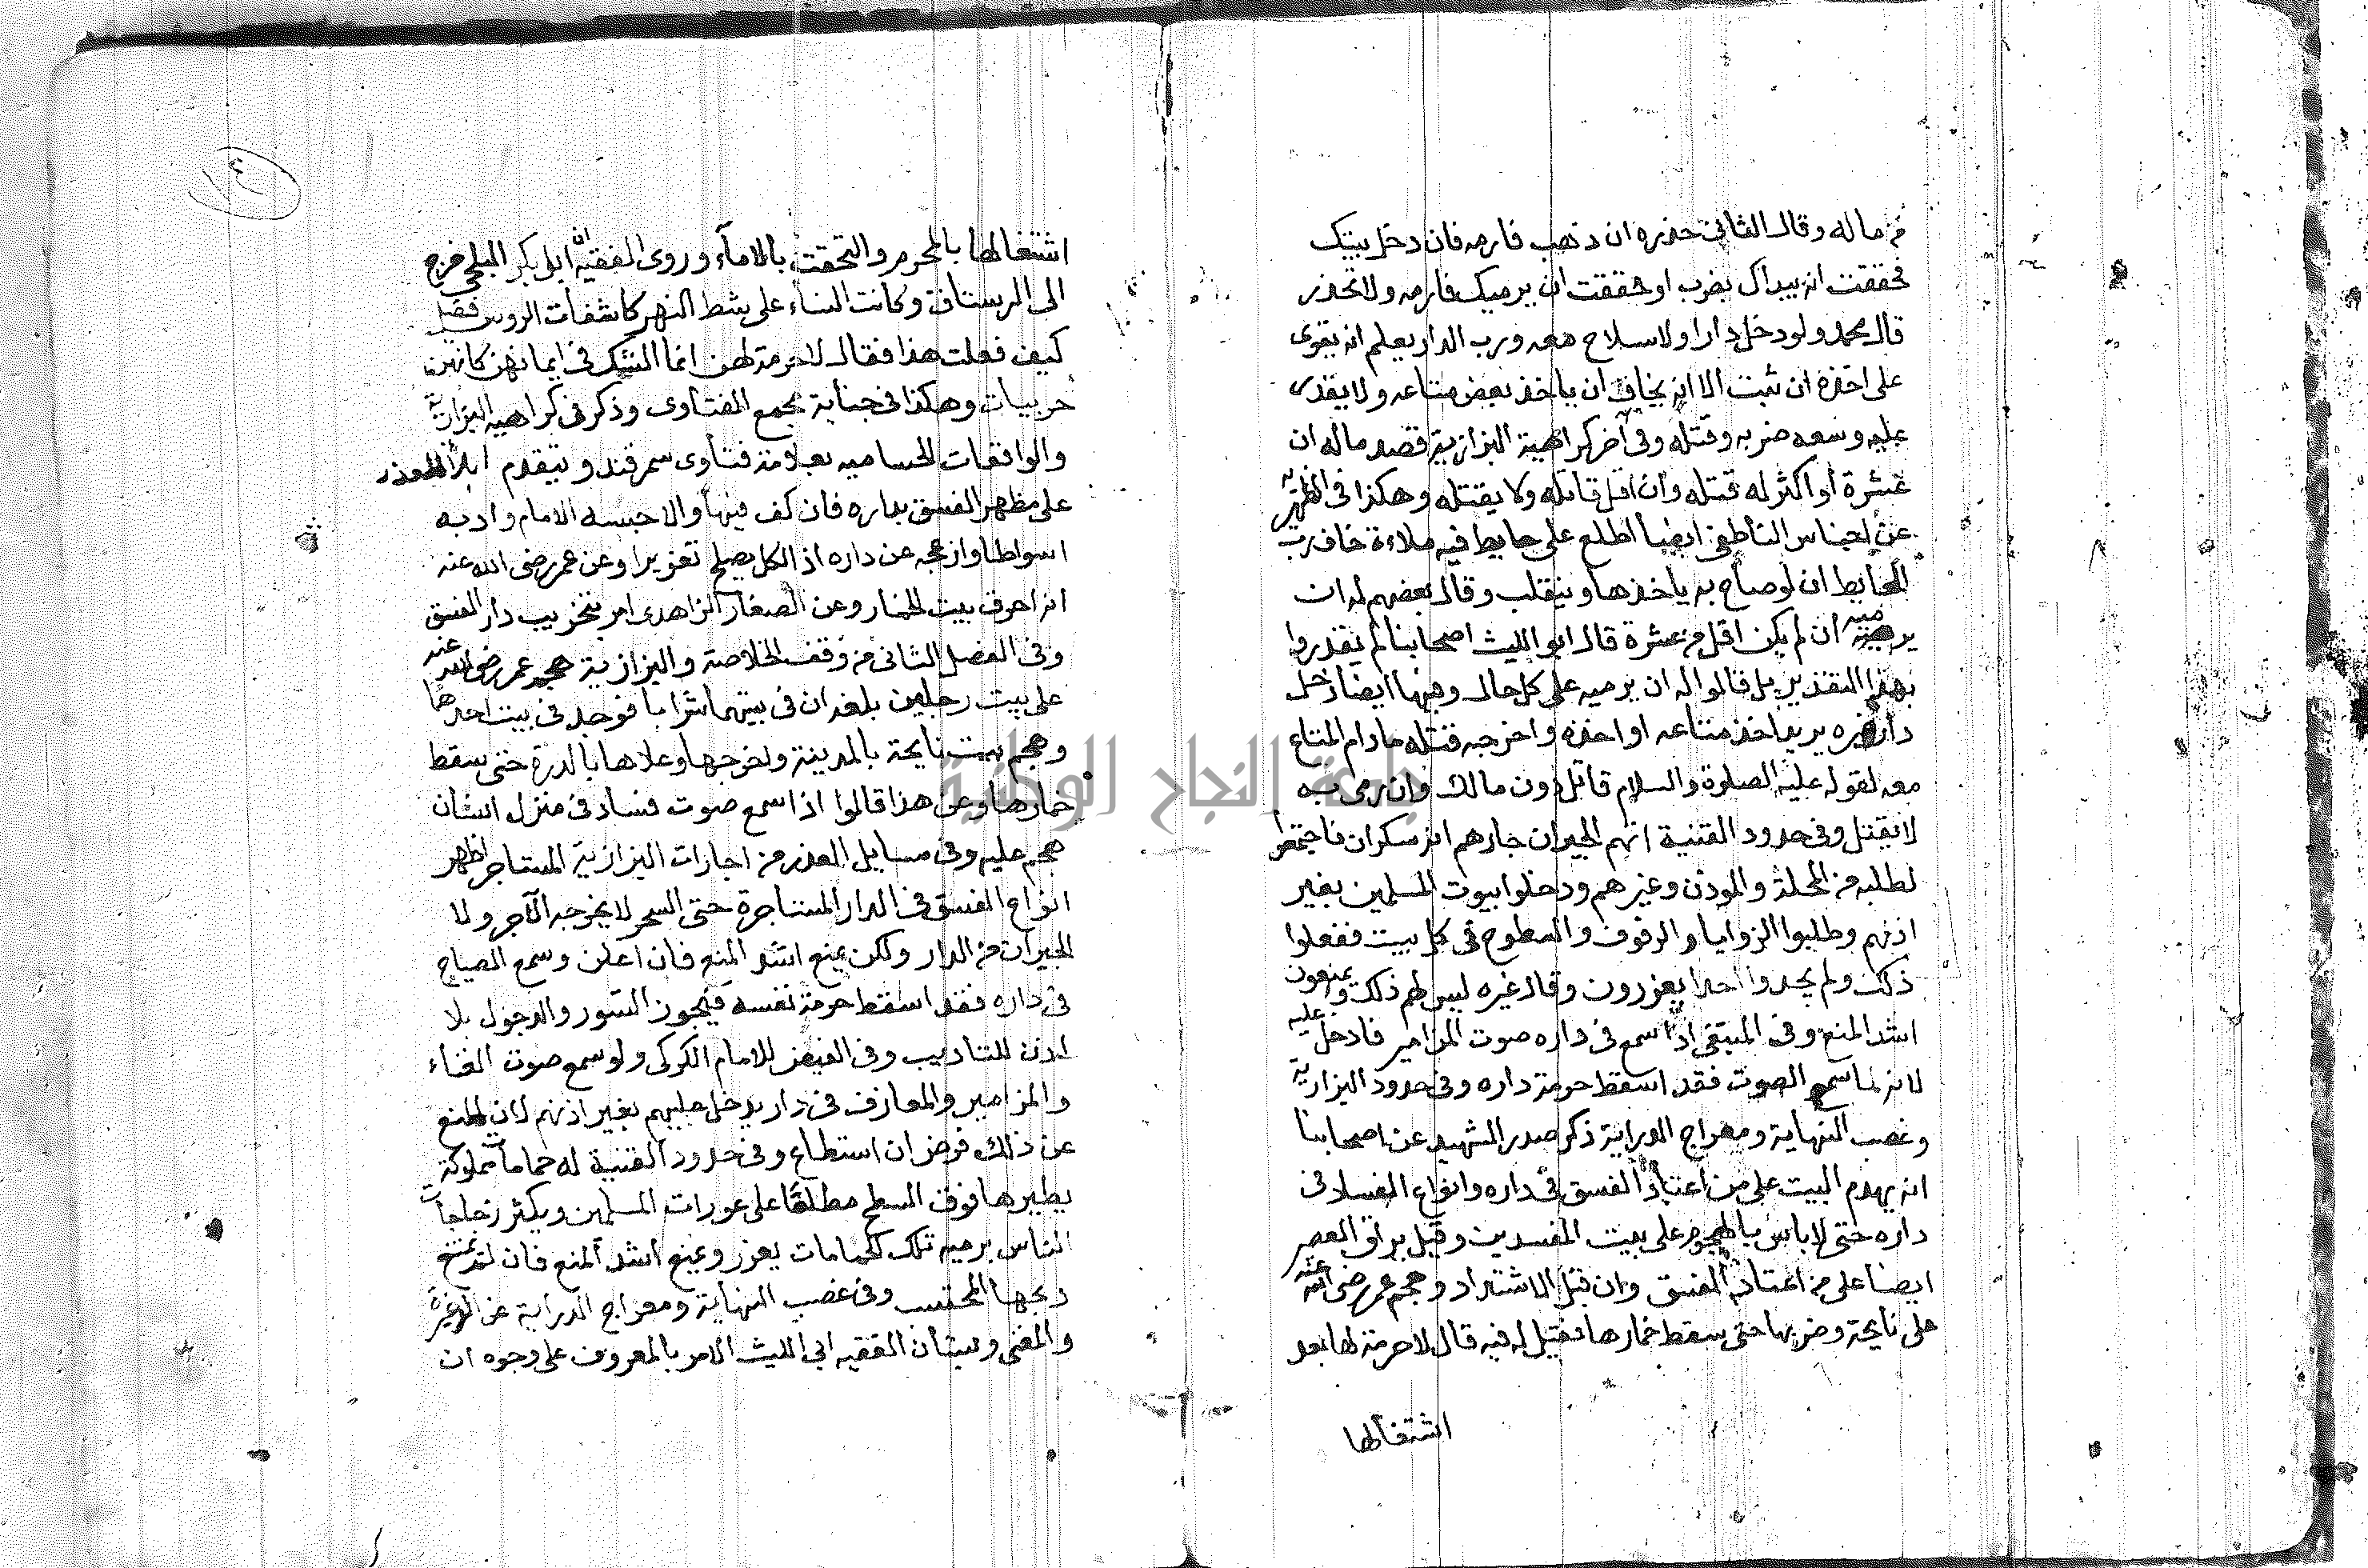 من ماله وقال الثانى حذره ان ذهب فارمه فان دخل بيتك
فحققت انه يبداك بضرب او حققت ان يرميك فارمه ولا تحذر
قال محمد ولو دخل دارا ولا سلاح معه ورب الدار يعلم انه يقوى
على اخذه ان ثبت الا انه يخاف ان ياخذ بعض متاعه ولا يقدر
عليه وسعه ضربه وقتله وفى آخر كراهية البزازية قصد ماله ان
عشرة أو اكثر له قتله وان اقل قاتله ولا يقتله وهكذا فى الظهيرية
عن اجناس الناطفى ايضا اطلع على حايط فيه ملاءة خاف رب
الحايط ان لو صاح به ياخذها وينقلب وقال بعضهم له ان
يرميه ان لم يكن اقل من عشرة قال ابو الليث اصحابنا لم يقدروا
بهذا التقدير بل قالوا له ان يرميه على كل حال وفيها ايضا دخل
دار غيره يريد اخذ متاعه او اخذه واخرجه قتله ما دام المتاع
معه لقوله عليه الصلوة والسلام قاتل دون مالك وان رمى به
لا يقتل وفى حدود القنية اتهم الجيران جارهم انه سكران فاجتمعوا
لطلبه من المحلة والموذن وغيرهم ودخلوا بيوت المسلمين بغير
اذنهم وطلبوا الزوايا والرفوف والسطوح فى كل بيت ففعلوا
ذلك ولم يجدوا احدا يعزرون وقال غيره ليس لهم ذلك ويمنعون
اشد المنع وفى المنتقى اذا سمع فى داره صوت المزامير فادخل عليه
لانه لما سمع الصوت فقد اسقط حرمة داره وفى حدود البزازية
وغصب النهاية ومعراج الدراية ذكر صدر الشهيد عن اصحابنا
انه يهدم البيت على من اعتاد الفسق فى داره وانواع الفساد فى
داره حتى لا باس بالهجوم على بيت المفسدين وقيل يراق العصير
ايضا على من اعتاد الفسق وان قبل الاشتداد وهجم عمر رضى الله عنه
على نايحة وضربها حتى سقط خمارها فقيل له فيه قال لا حرمة لها بعد
اشتغالها
اشتغالها بالمحرم والتحقت بالامآء وروى الفقيه ان ابى بكر البلخى خرج
الى الرستاق وكانت النساء على شط النهر كاشفات الروس فقيل
كيف فعلت هذا فقال لا حرمة لهن انما الشك فى ايمانهن كانهن
حربيات وهكذا فى جناية مجمع الفتاوى وذكر فى كراهية البزازية
والواقعات الحسامية بعلامة فتاوى سمرقند ويتقدم ابلاء العذر
على مظهر الفسق بداره فان كف فبها والا حبسه الامام وادبه
اسواطا وازعجه عن داره اذ الكل يصلح تعزيرا وعن عمر رضى الله عنه
انه احرق بيت الخمار وعن الصفار الزاهدى امر بتخريب دار الفسق
وفى الفصل الثانى من وقف الخلاصة والبزازية هجم عمر رضى الله عنه
على بيت رجلين بلغه ان فى بيتهما شرابا فوجد فى بيت احدهما
وهجم بيت نايحة بالمدينة واخرجها وعلاها بالدرة حتى سقط
خمارها وعن هذا قالوا اذا سمع صوت فساد فى منزل انسان
هجم عليه وفى مسايل العذر من اجارات البزازية المستاجر اظهر
انواع الفسق فى الدار المستاجرة حتى السحر لا يخرجه الآجر ولا
الجيران من الدار ولكن يمنع اشد المنع فان اعلن وسمع الصياح
فى داره فقد اسقط حرمة نفسه فيجوز التسور والدخول بلا
اذن للتاديب وفى الفيض للامام الكركى ولو سمع صوت الغناء
والمزامير والمعازف فى دار يدخل عليهم بغير اذنهم لان المنع
عن ذلك فرض ان استطاع وفى حدود القنية له حمامات مملوكة
يطيرها فوق السطح مطلقا على عورات المسلمين ويكثر زجاجات
الناس برميه تلك الحمامات يعزر ويمنع اشد المنع فان لم يمتنع
ذبحها المحتسب وفى غصب النهاية ومعراج الدراية عن الذخيرة
والمغنى وبستان الفقيه ابى الليث الامر بالمعروف على وجوه ان
جامعة النجاح الوطنية